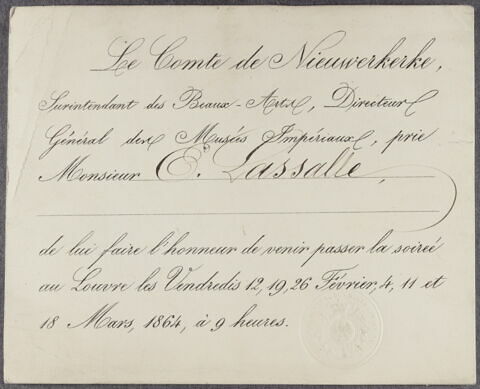 Le Comte de Nieuwerkerke,
Surintendant des Beaux-Arts, Directeur
Général des Musées Impériaux, prie
Monsieur E. Lassalle,
de lui faire l'honneur de venir passer la soireé
au Louvre les Vendredis 12, 19, 26 Février, 4, 11 et
18 Mars, 1864, à 9 heures.